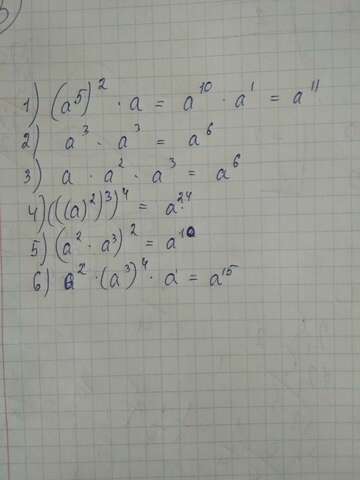 1) (a⁵)² · a = a¹⁰ · a¹ = a¹¹
2) a³ · a³ = a⁶
3) a · a² · a³ = a⁶
4) (((a)²)³)⁴ = a²⁴
5) (a² · a³)² = a¹⁰
6) a² · (a³)⁴ · a = a¹⁵